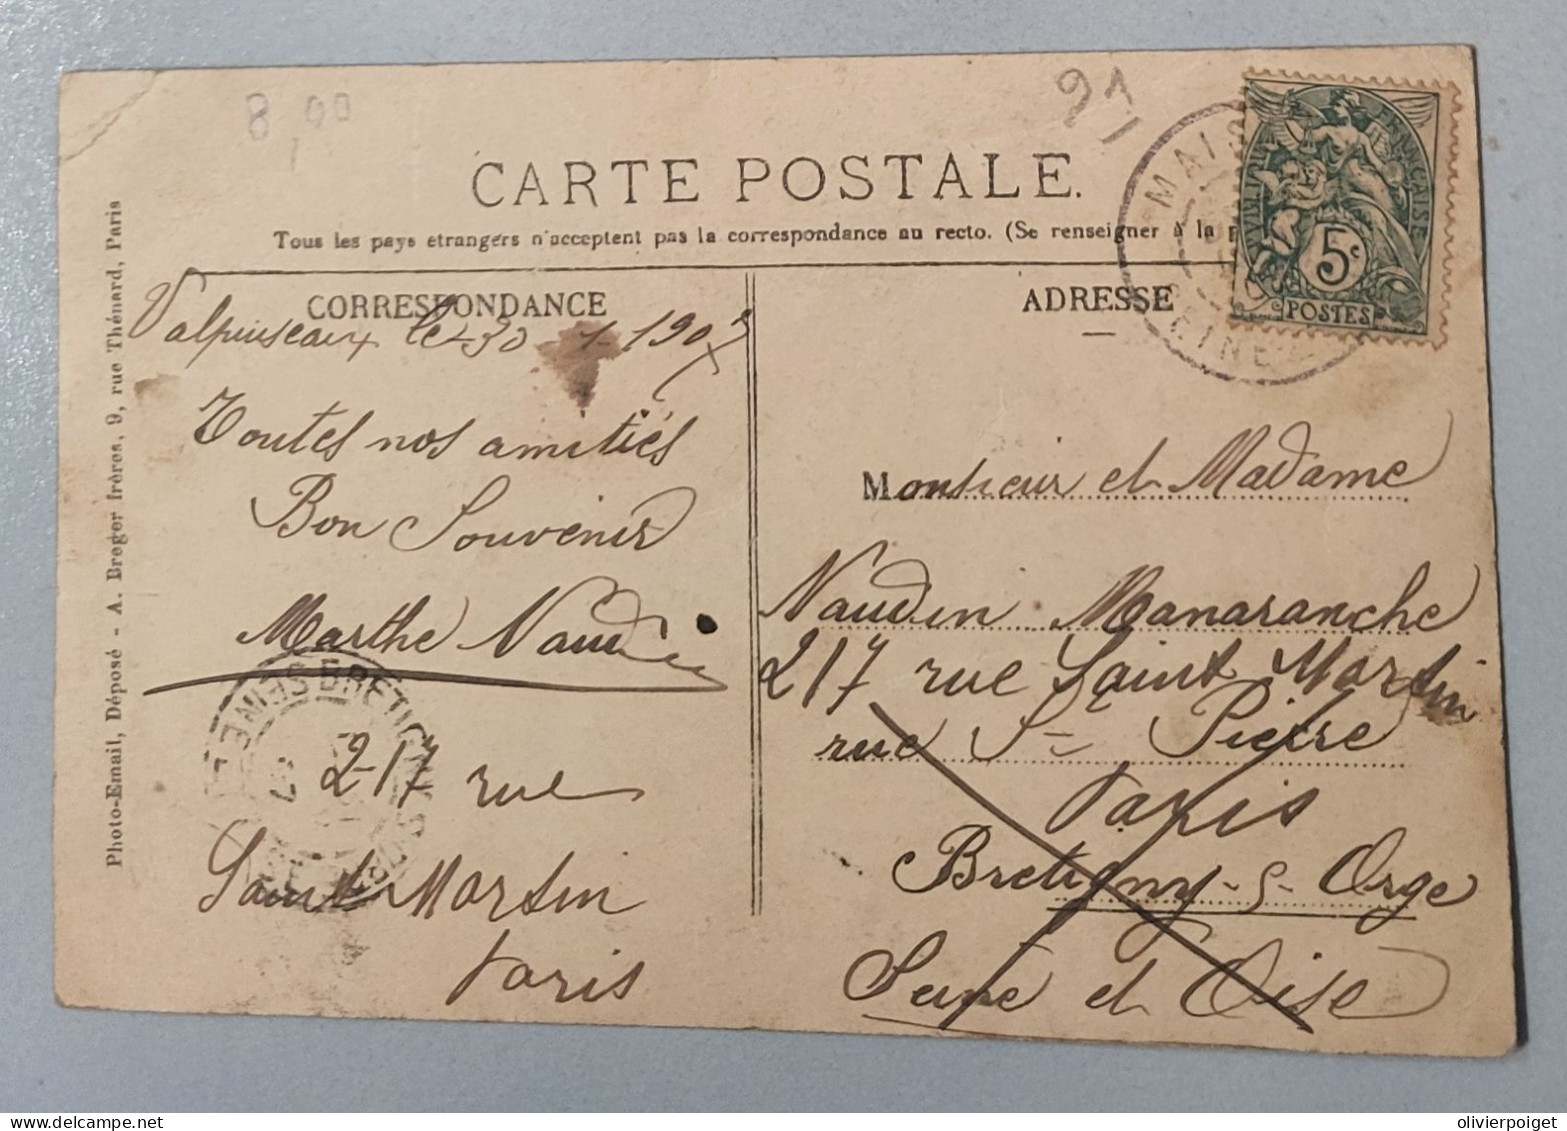 8,00
91
CARTE POSTALE.
Tous les pays etrangers n'acceptent pas la correspondance au recto. (Se renseigner à la
CORRESPONDANCE
le 30 1 1905
Toutes nos amitiés
Bon Souvenir
Marthe Naudin
217 rue
Saint Martin
Paris
ADRESSE
Monsieur et Madame
Naudin Manaranche
217 rue Saint Martin
rue St Pierre
Paris
Bretigny-s-Orge
Seine et Oise
Photo-Email, Déposé - A. Breger frères, 9, rue Thénard, Paris
FRANÇAISE
5c
POSTES
MAIS
SEINE
BRETIGNY
SEINE
olivierpoiget